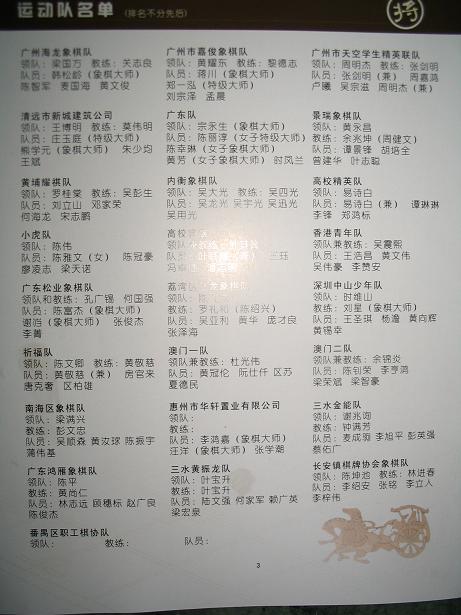 运动队名单 (排名不分先后)
将
广州海龙象棋队
领队：梁国方 教练：关志良
队员：韩松龄（象棋大师）
陈智军 麦国海 黄文俊
广州市嘉俊象棋队
领队：黄耀东 教练：黎德志
队员：蒋川（象棋大师）
郑一泓（特级大师）
刘宗泽 孟晨
广州市天空学生精英联队
领队：周明杰 教练：张剑明
队员：张剑明（兼） 周嘉鸿
卢曦 吴宗滋 周明杰（兼）
清远市新城建筑公司
领队：王博明 教练：莫伟明
队员：庄玉庭（特级大师）
熊学元（象棋大师） 朱少均
王斌
广东队
领队：宗永生（象棋大师）
队员：陈丽淳（女子特级大师）
陈幸琳（女子象棋大师）
黄芳（女子象棋大师） 时凤兰
景瑞象棋队
领队：黄永昌
教练：余兆坤（周健文）
队员：谭景锋 胡培全
曾建华 叶志聪
黄埔耀棋队
领队：罗桂棠 教练：吴彭生
队员：刘立山 邓家荣
何海龙 宋志鹏
内衡象棋队
领队：吴大光 教练：吴四光
队员：吴龙光 吴宇光 吴迅光
吴用光
高校精英队
领队：易诗白
队员：易诗白（兼） 谭琳琳
李锋 郑鸿标
小虎队
领队：陈伟
队员：陈雅文（女） 陈冠豪
廖凌志 梁天诺
高校
领队兼教练：
队员：
香港青年队
领队兼教练：吴震熙
队员：王浩昌 黄文伟
吴伟豪 李赞安
广东松业象棋队
领队和教练：孔广锡 何国强
队员：陈富杰（象棋大师）
谢岿（象棋大师） 张俊杰
李菁
荔湾区 象棋队
领队：
教练：罗礼和（陈绍兴）
队员：吴亚利 黄华 庞才良
张泽海
深圳中山少年队
领队：时雄山
教练：刘星（象棋大师）
队员：王圣琪 杨澹 黄向辉
黄锡幸
祈福队
领队：陈文卿 教练：黄敬慈
队员：黄敬慈（兼） 房官来
唐克奢 区柏雄
澳门一队
领队兼教练：杜光伟
队员：黄冠伦 阮仕仟 区苏
夏德民
澳门二队
领队兼教练：余锦炎
队员：陈钊荣 李亨鸿
梁荣斌 梁智豪
南海区象棋队
领队：梁满兴
教练：彭文忠
队员：吴顺森 黄汝球 陈振宇
蒲伟基
惠州市华轩置业有限公司
领队：
教练：
队员：李鸿嘉（象棋大师）
汪洋（象棋大师） 张学潮
三水金能队
领队：谢兆洵
教练：钟满芳
队员：麦成羽 李旭平 彭英强
蔡佑广
广东鸿雁象棋队
领队：陈平
教练：黄尚仁
队员：林志远 顾穗标 赵广良
陈俊杰
三水黄振龙队
领队：叶宝升
教练：叶宝升
队员：陆文强 何家军 赖广英
梁宏泉
长安镇棋牌协会象棋队
领队：陈坤池 教练：林进春
队员：李绍安 张铭 李立人
李梓伟
番禺区职工棋协队
领队： 教练： 队员：
3